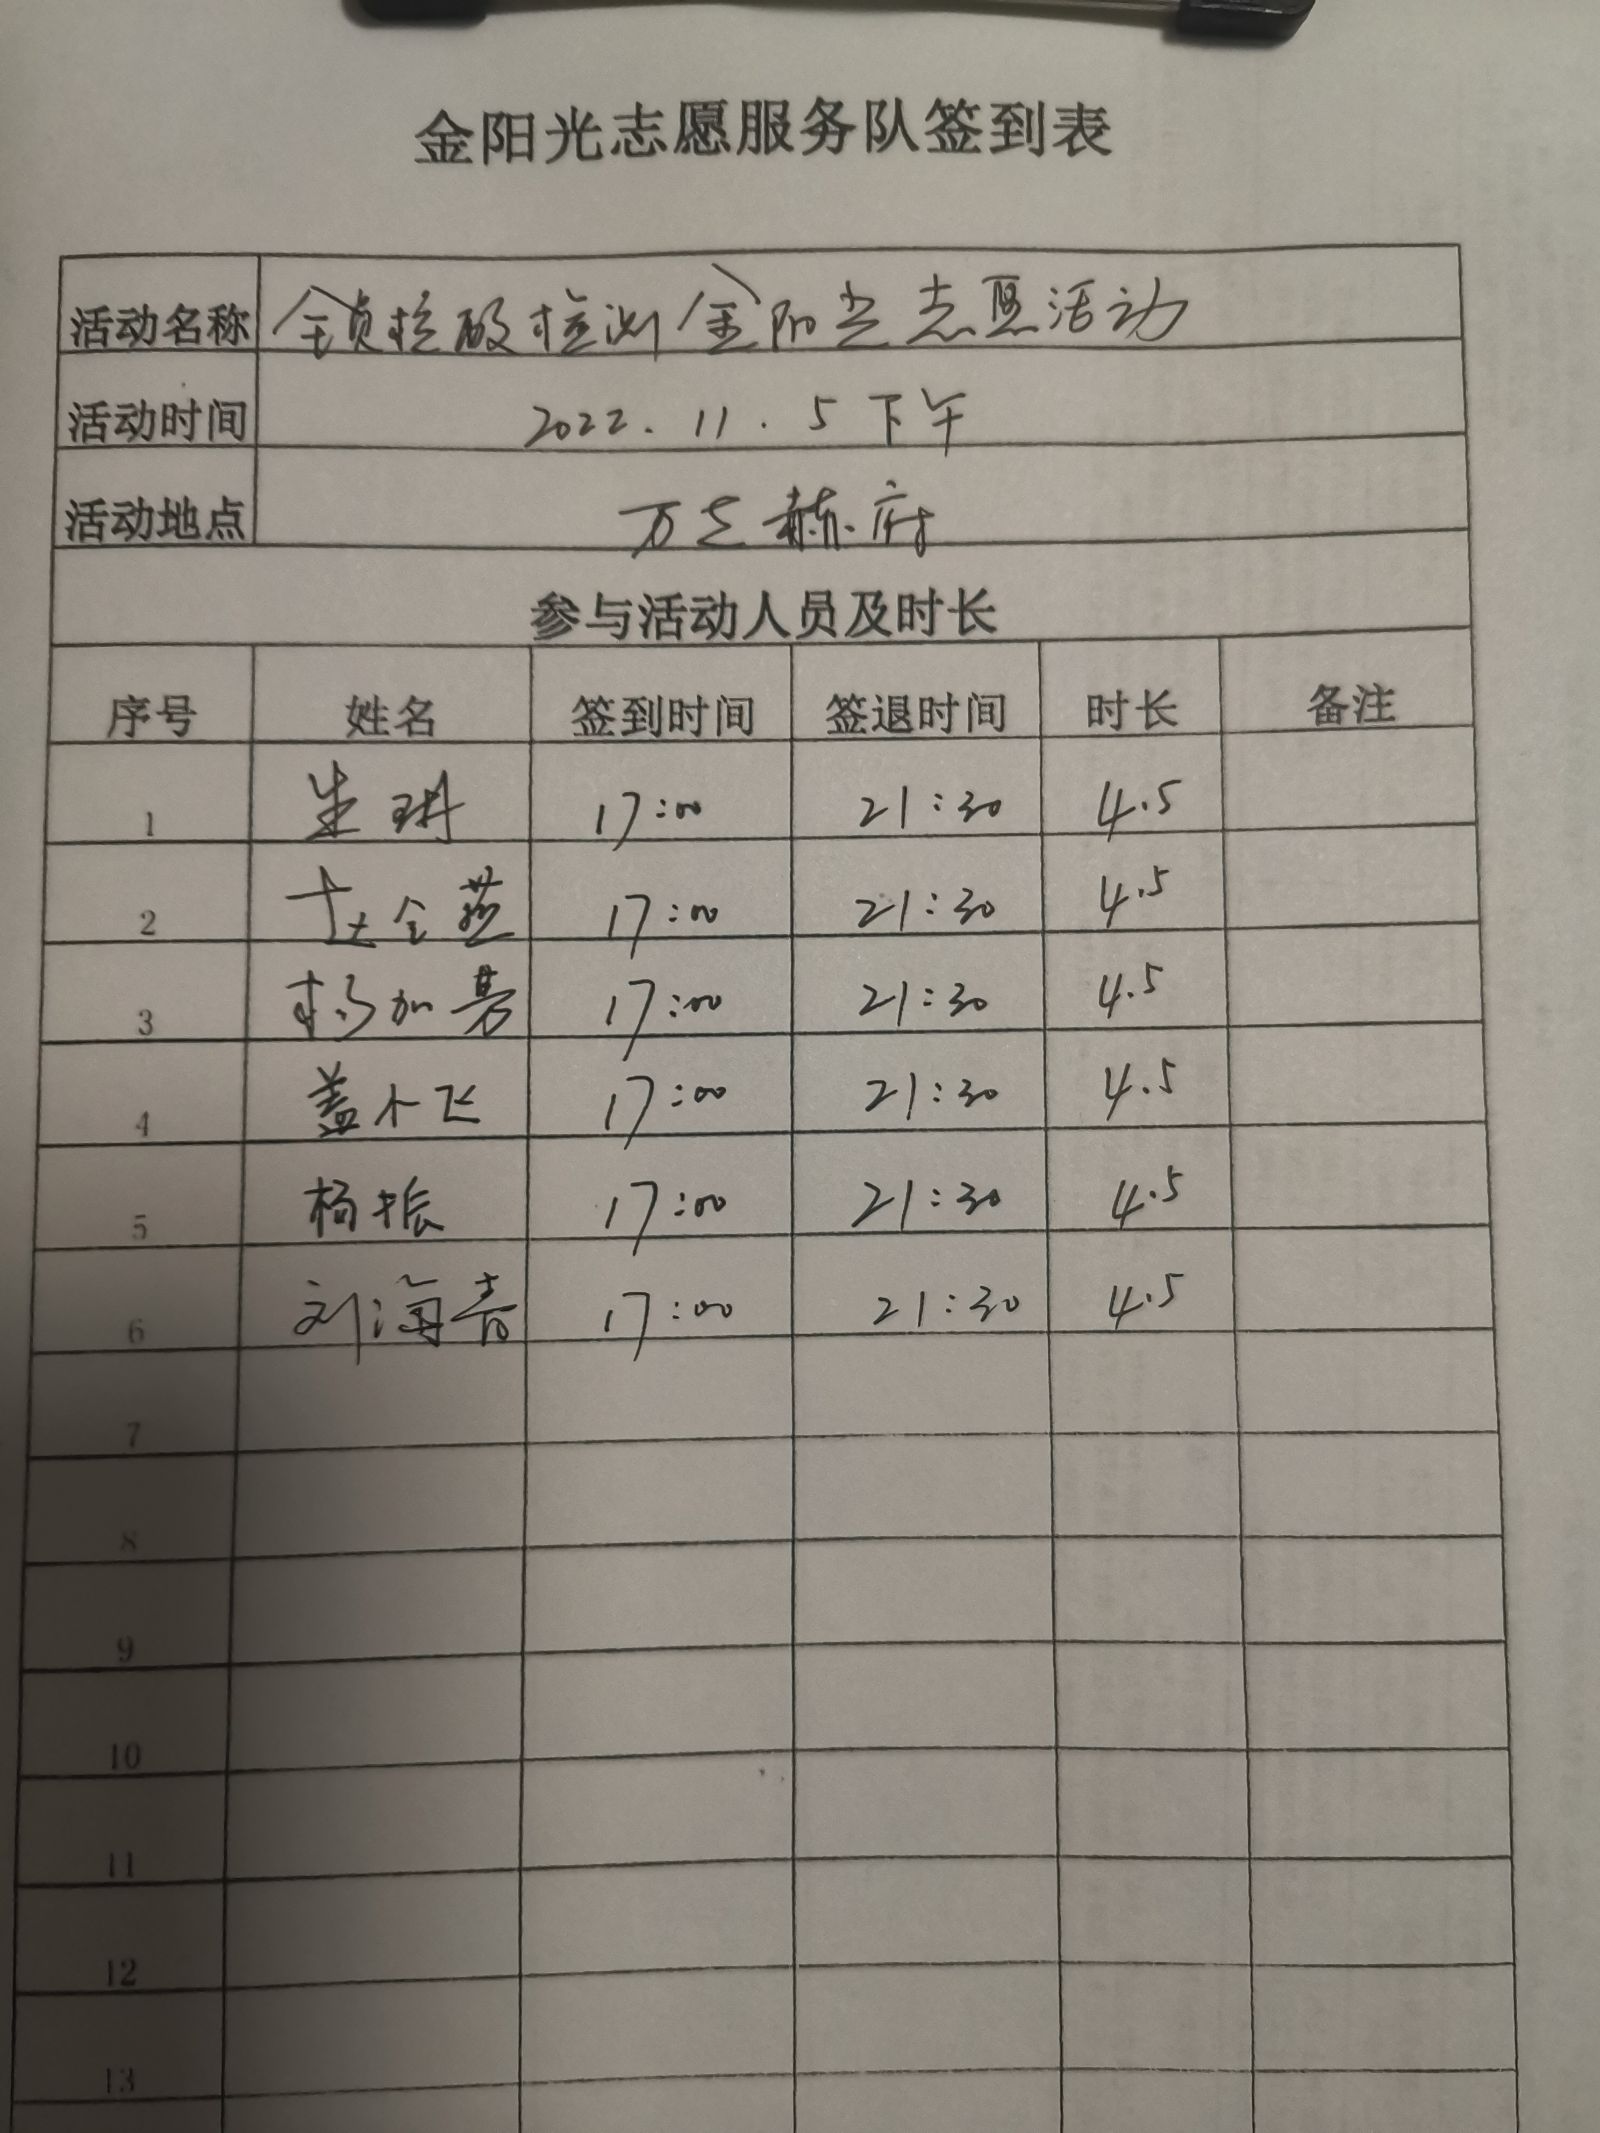 金阳光志愿服务队签到表
活动名称 全员核酸检测金阳光志愿活动
活动时间 2022.11.5 下午
活动地点 万之赫府
参与活动人员及时长
序号 姓名 签到时间 签退时间 时长 备注
1 朱琪 17:00 21:30 4.5
2 17:00 21:30 4.5
3 杨加 17:00 21:30 4.5
4 盖小飞 17:00 21:30 4.5
5 杨振 17:00 21:30 4.5
6 刘海青 17:00 21:30 4.5
7
8
9
10
11
12
13